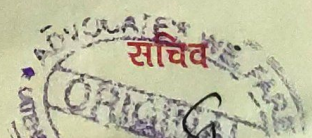 ADVOCATES WELFARE
सचिव
ORIGINAL